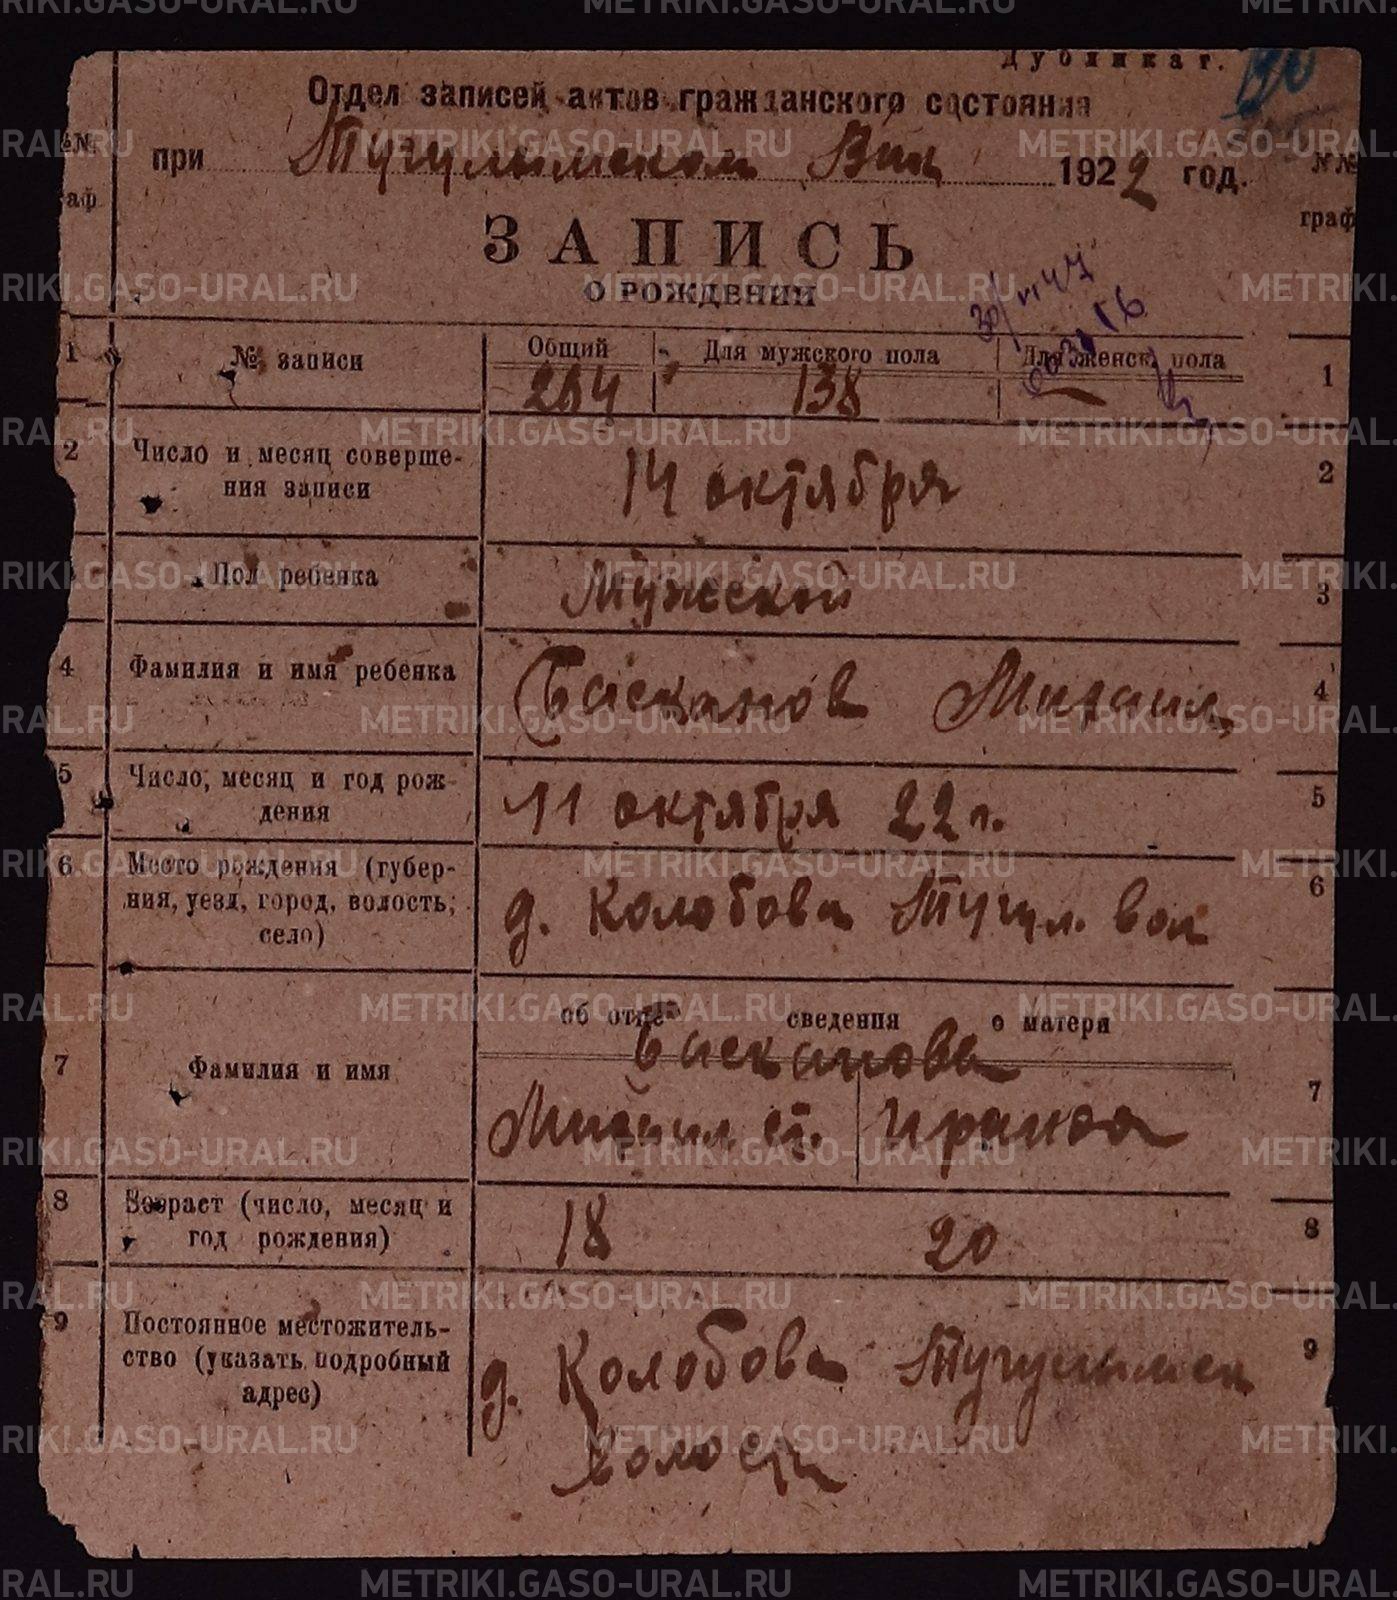 Дубликат.
Отдел записей актов гражданского состояния
№№ граф
при Тугулымском Вик 1922 год.
№№ граф
ЗАПИСЬ
О РОЖДЕНИИ
1 № записи Общий Для мужского пола Для женск. пола 1
264 138 —
2 Число и месяц соверше-
ния записи 14 октября 2
Пол ребенка Мужской 3
4 Фамилия и имя ребенка Басканов Михаил 4
5 Число, месяц и год рож-
дения 11 октября 22 г. 5
6 Место рождения (губер-
ния, уезд, город, волость,
село) д. Колобова Тугул. вол 6
об отце сведения о матери
Басканова
7 Фамилия и имя 7
Михаил ст.
8 Возраст (число, месяц и
год рождения) 18 20 8
9 Постоянное местожитель-
ство (указать подробный
адрес) д. Колобова Тугулымск 9
волости
METRIKI.GASO-URAL.RU